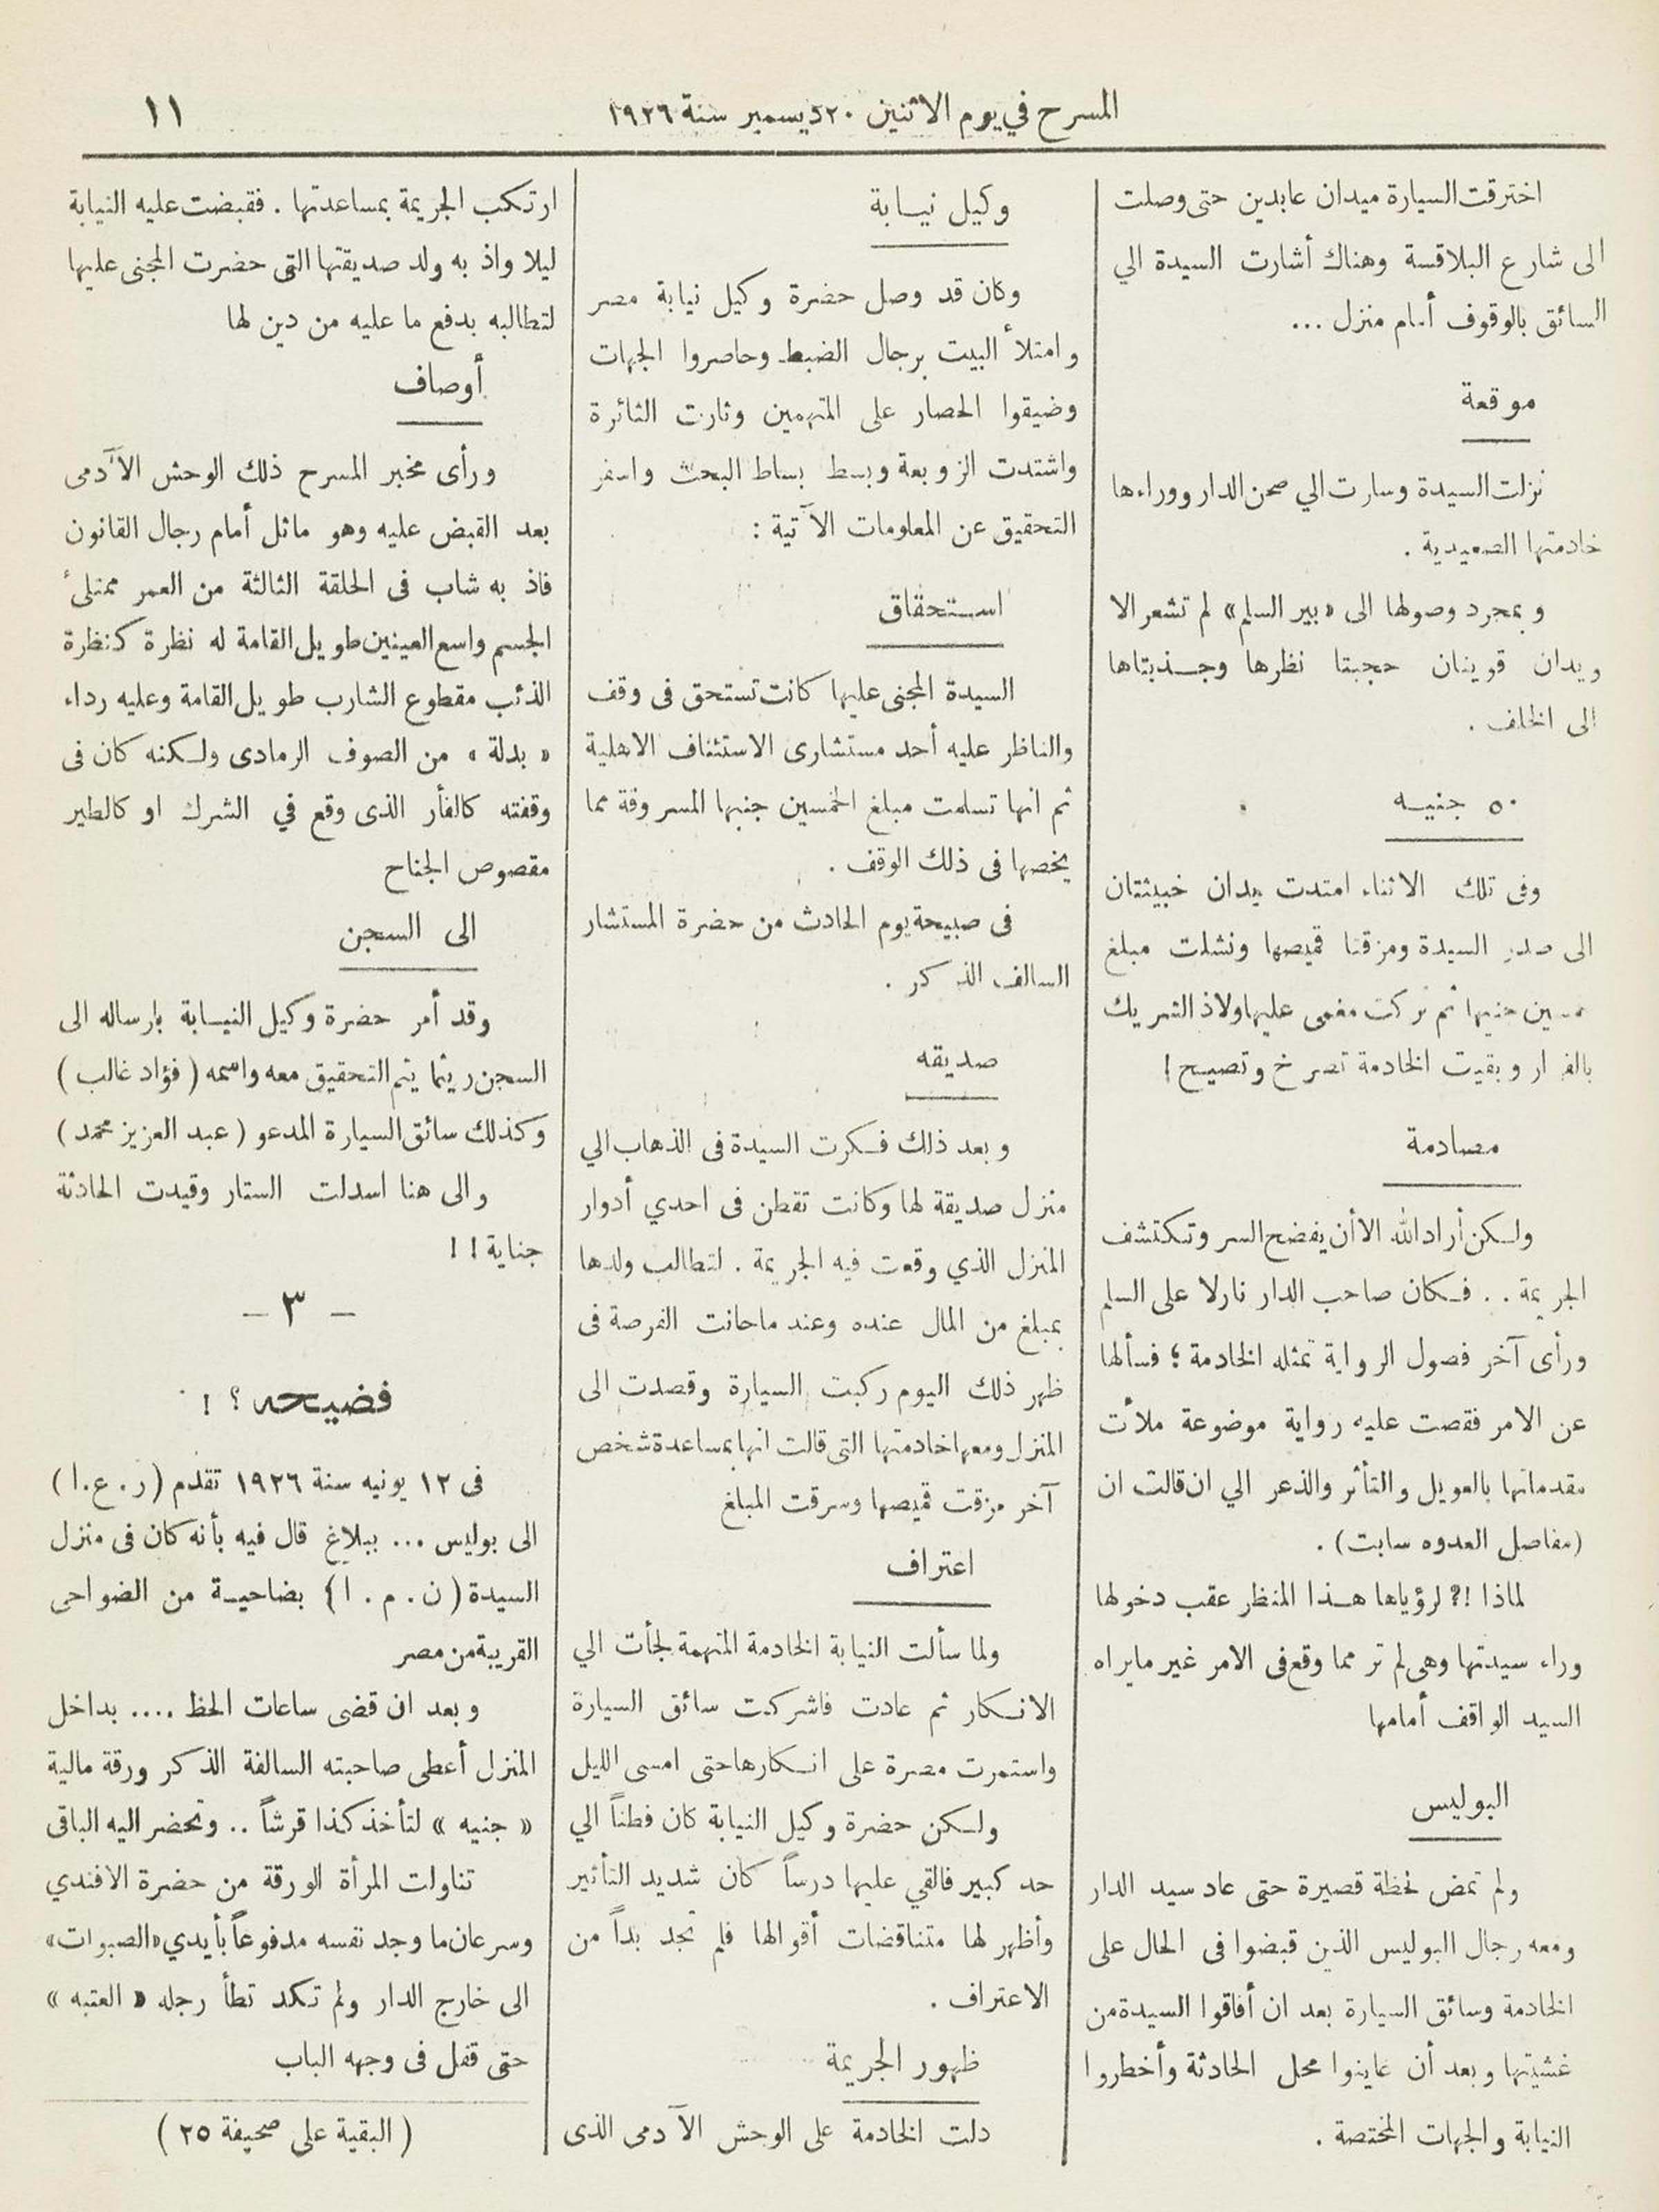 المسرح في يوم الاثنين ٢٠ ديسمبر سنة ١٩٢٦
١١
اخترقت السيارة ميدان عابدين حتى وصلت
الى شارع البلاقسة وهناك أشارت السيدة الي
السائق بالوقوف أمام منزل ...
موقعة
نزلت السيدة وسارت الي صحن الدار ووراءها
خادمتها الصعيدية .
وبمجرد وصولها الى «بير السلم» لم تشعر الا
ويدان قوينان حجبتا نظرها وجـذبتاها
الى الخلف .
٥٠ جنيـه
وفى تلك الاثناء امتدت يدان خبيثتان
الى صدر السيدة ومزقتا قميصها ونشلت مبلغ
خمسين جنيها ثم تركت مغمى عليها ولاذ الشريك
بالفرار وبقيت الخادمة تصرخ وتصيح !
مصادمة
ولـكن أراد الله الا أن يفضح السر وتكتشف
الجريمة . . فـكان صاحب الدار نازلا على السلم
ورأى آخر فصول الرواية تمثله الخادمة ؛ فسألها
عن الامر فقصت عليه رواية موضوعة ملأت
مقدماتها بالعويل والتأثر والذعر الي ان قالت ان
(مفاصل العدوه سابت) .
لماذا !? لرؤياها هـذا المنظر عقب دخولها
وراء سيدتها وهى لم تر مما وقع فى الامر غير مايراه
السيد الواقف أمامها
البوليس
ولم تمض لحظة قصيرة حتى عاد سيد الدار
ومعه رجال البوليس الذين قبضوا فى الحال على
الخادمة وسائق السيارة بعد ان أفاقوا السيدة من
غشيتها وبعد أن عاينوا محل الحادثة وأخطروا
النيابة والجهات المختصة .
وكيل نيـابة
وكان قد وصل حضرة وكيل نيابة مصر
وامتلأ البيت برجال الضبط وحاصروا الجهات
وضيقوا الحصار على المتهمين وثارت الثائرة
واشتدت الزوبعة وبسط بساط البحث واسفر
التحقيق عن المعلومات الآتية :
اسـتحقاق
السيدة المجنى عليها كانت تستحق فى وقف
والناظر عليه أحد مستشارى الاستئناف الاهلية
ثم انها تسلمت مبلغ الخمسين جنيها المسروقة مما
يخصها فى ذلك الوقف .
فى صبيحة يوم الحادث من حضرة المستشار
السالف الذكر .
صديقه
وبعد ذلك فـكرت السيدة فى الذهاب الي
منزل صديقة لها وكانت تقطن فى احدي أدوار
المنزل الذي وقعت فيه الجريمة . لتطالب ولدها
بمبلغ من المال عنده وعند ماحانت الفرصة فى
ظهر ذلك اليوم ركبت السيارة وقصدت الى
المنزل ومعها خادمتها التى قالت انها بمساعدة شخص
آخر مزقت قميصها وسرقت المبلغ
اعتراف
ولما سألت النيابة الخادمة المتهمة لجأت الي
الانـكار ثم عادت فاشركت سائق السيارة
واستمرت مصرة على انـكارها حتى امسى الليل
ولـكن حضرة وكيل النيابة كان فطناً الي
حد كبير فالقي عليها درساً كان شديد التأثير
وأظهر لها متناقضات أقوالها فلم تجد بداً من
الاعتراف .
ظهور الجريمة
دلت الخادمة على الوحش الآدمى الذى
ارتكب الجريمة بمساعدتها . فقبضت عليه النيابة
ليلا واذ به ولد صديقتها التى حضرت المجنى عليها
لتطالبه بدفع ما عليه من دين لها
أوصاف
ورأى مخبر المسرح ذلك الوحش الآدمى
بعد القبض عليه وهو ماثل أمام رجال القانون
فاذ به شاب فى الحلقة الثالثة من العمر ممتلئ
الجسم واسع العينين طويل القامة له نظرة كنظرة
الذئب مقطوع الشارب طويل القامة وعليه رداء
« بدلة » من الصوف الرمادى ولـكنه كان فى
وقفته كالفأر الذى وقع في الشرك او كالطير
مقصوص الجناح
الى السجن
وقد أمر حضرة وكيل النيـابة بارساله الى
السجن ريثما يتم التحقيق معه واسمه ( فؤاد غالب )
وكذلك سائق السيارة المدعو ( عبد العزيز محمد )
والى هنا اسدلت الستار وقيدت الحادثة
جناية ! !
— ٣ —
فضيحه ؟ !
فى ١٢ يونيه سنة ١٩٢٦ تقدم (ر . ع . ا )
الى بوليس ... ببلاغ قال فيه بأنه كان فى منزل
السيدة ( ن . م . ا } بضاحيـة من الضواحى
القريبة من مصر
وبعد ان قضى ساعات الحظ .... بداخل
المنزل أعطى صاحبته السالفة الذكر ورقة مالية
« جنيه » لتأخذ كذا قرشاً .. وتحضر اليه الباقى
تناولت المرأة الورقة من حضرة الافندي
وسرعان ما وجد نفسه مدفوعاً بأيدي «الصبوات»
الى خارج الدار ولم تكد تطأ رجله « العتبه »
حتى قفل فى وجهه الباب
( البقية على صحيفة ٢٥ )